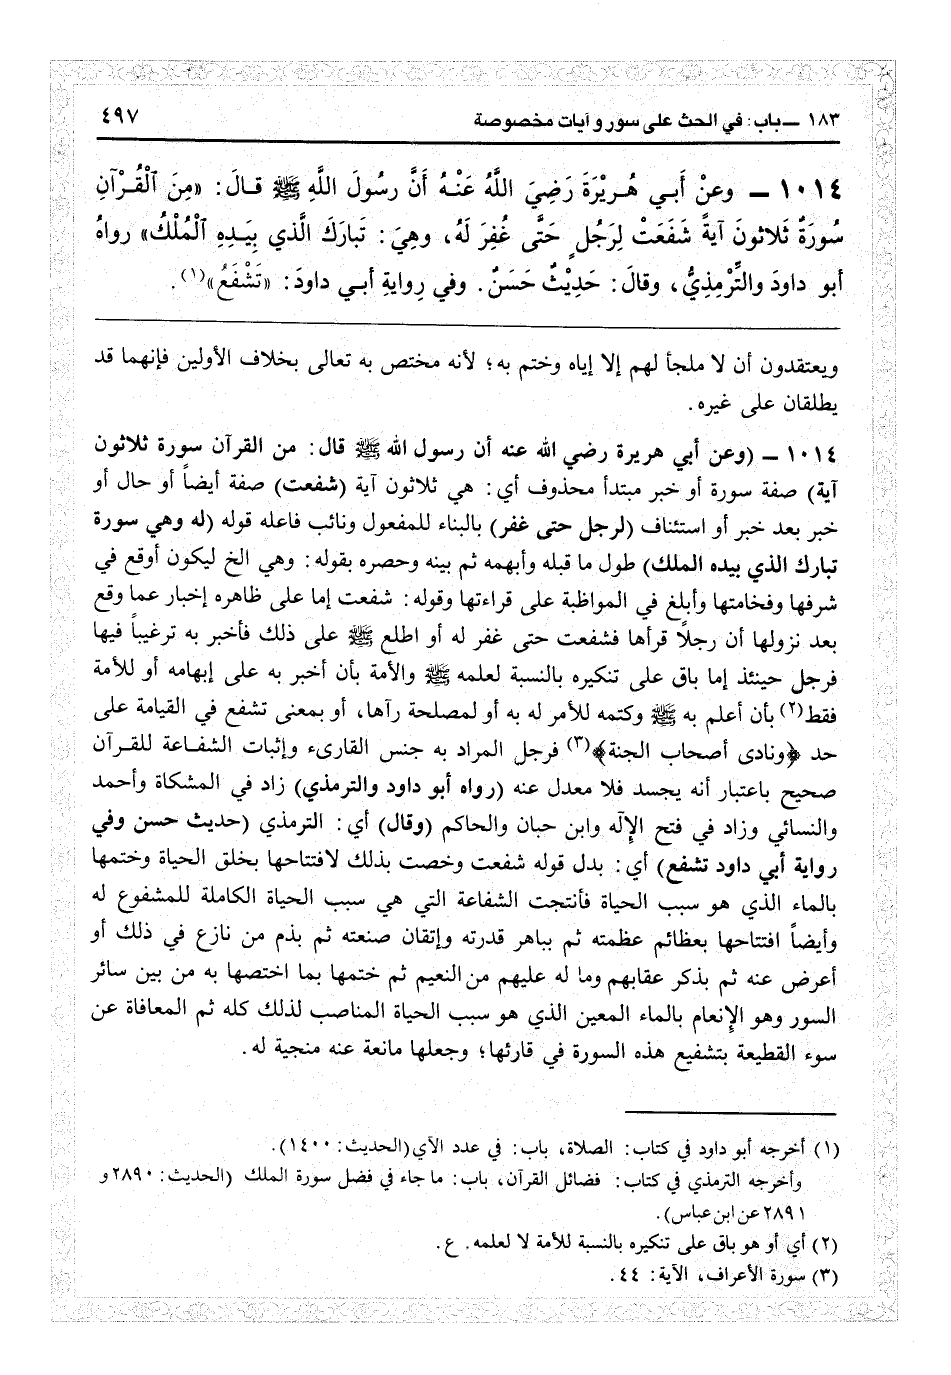 ١٨٣ ــ باب: في الحث على سور و آيات مخصوصة
٤٩٧
١٠١٤ ــ وعنْ أَبـي هُـرَيْرَةَ رَضِيَ اللَّهُ عَنْـهُ أَنَّ رسُولَ اللَّهِ ﷺ قـالَ: «مِنَ ٱلْقُـرْآنِ
سُورَةٌ ثَلاثونَ آيةً شَفَعَتْ لِرَجُلٍ حَتَّى غُفِرَ لَهُ، وهِيَ: تَبارَكَ الَّذي بِيَـدِهِ ٱلْمُلْكُ» رواهُ
أبو داودَ والتِّرْمِذِيُّ، وقالَ: حَدِيْثٌ حَسَنٌ. وفي رِوايةِ أبـي داودَ: «تَشْفَعُ»(١).
ويعتقدون أن لا ملجأ لهم إلا إياه وختم به؛ لأنه مختص به تعالى بخلاف الأولين فإنهما قد
يطلقان على غيره.
١٠١٤ ــ (وعن أبي هريرة رضي الله عنه أن رسول الله ﷺ قال: من القرآن سورة ثلاثون
آية) صفة سورة أو خبر مبتدأ محذوف أي: هي ثلاثون آية (شفعت) صفة أيضاً أو حال أو
خبر بعد خبر أو استئناف (لرجل حتى غفر) بالبناء للمفعول ونائب فاعله قوله (له وهي سورة
تبارك الذي بيده الملك) طول ما قبله وأبهمه ثم بينه وحصره بقوله: وهي الخ ليكون أوقع في
شرفها وفخامتها وأبلغ في المواظبة على قراءتها وقوله: شفعت إما على ظاهره إخبار عما وقع
بعد نزولها أن رجلاً قرأها فشفعت حتى غفر له أو اطلع ﷺ على ذلك فأخبر به ترغيباً فيها
فرجل حينئذ إما باق على تنكيره بالنسبة لعلمه ﷺ والأمة بأن أخبر به على إبهامه أو للأمة
فقط(٢) بأن أعلم به ﷺ وكتمه للأمر له به أو لمصلحة رآها، أو بمعنى تشفع في القيامة على
حد ﴿ونادى أصحاب الجنة﴾(٣) فرجل المراد به جنس القارىء وإثبات الشفـاعة للقـرآن
صحيح باعتبار أنه يجسد فلا معدل عنه (رواه أبو داود والترمذي) زاد في المشكاة وأحمد
والنسائي وزاد في فتح الإلٰه وابن حبان والحاكم (وقال) أي: الترمذي (حديث حسن وفي
رواية أبي داود تشفع) أي: بدل قوله شفعت وخصت بذلك لافتتاحها بخلق الحياة وختمها
بالماء الذي هو سبب الحياة فأنتجت الشفاعة التي هي سبب الحياة الكاملة للمشفوع له
وأيضاً افتتاحها بعظائم عظمته ثم بباهر قدرته وإتقان صنعته ثم بذم من نازع في ذلك أو
أعرض عنه ثم بذكر عقابهم وما له عليهم من النعيم ثم ختمها بما اختصها به من بين سائر
السور وهو الإنعام بالماء المعين الذي هو سبب الحياة المناصب لذلك كله ثم المعافاة عن
سوء القطيعة بتشفيع هذه السورة في قارئها؛ وجعلها مانعة عنه منجية له.
(١) أخرجه أبو داود في كتاب: الصلاة، باب: في عدد الآي (الحديث: ١٤٠٠).
وأخرجه الترمذي في كتاب: فضائل القرآن، باب: ما جاء في فضل سورة الملك (الحديث: ٢٨٩٠ و
٢٨٩١ عن ابن عباس).
(٢) أي أو هو باق على تنكيره بالنسبة للأمة لا لعلمه. ع.
(٣) سورة الأعراف، الآية: ٤٤.